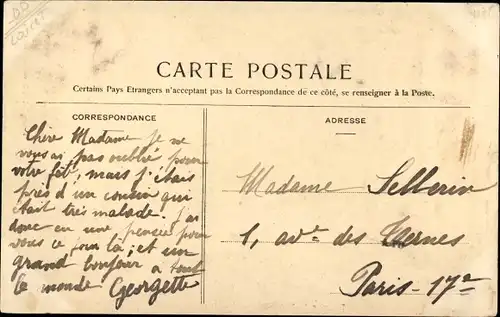 CARTE POSTALE
Certains Pays Etrangers n'acceptant pas la Correspondance de ce côté, se renseigner à la Poste.
CORRESPONDANCE
Chère Madame je ne
vous ai pas oublié pour
votre fêt, mais j'étais
près d un cousin qui
était très malade. j'ai
donc eu une pensée pour
vous ce jour là, et un
grand bonjour à tout
le monde Georgette
ADRESSE
Madame Sellerin
1, ave des Ternes
Paris-17e